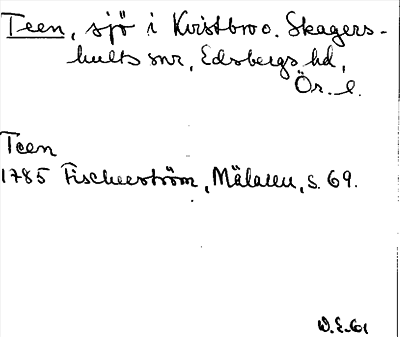 Teen, sjö i Kvistbro o. Skagers-
hults snr, Edsbergs hd,
Ör. l.
Teen
1785 Fischerström, Mälaren, s. 69.
W.E. 61